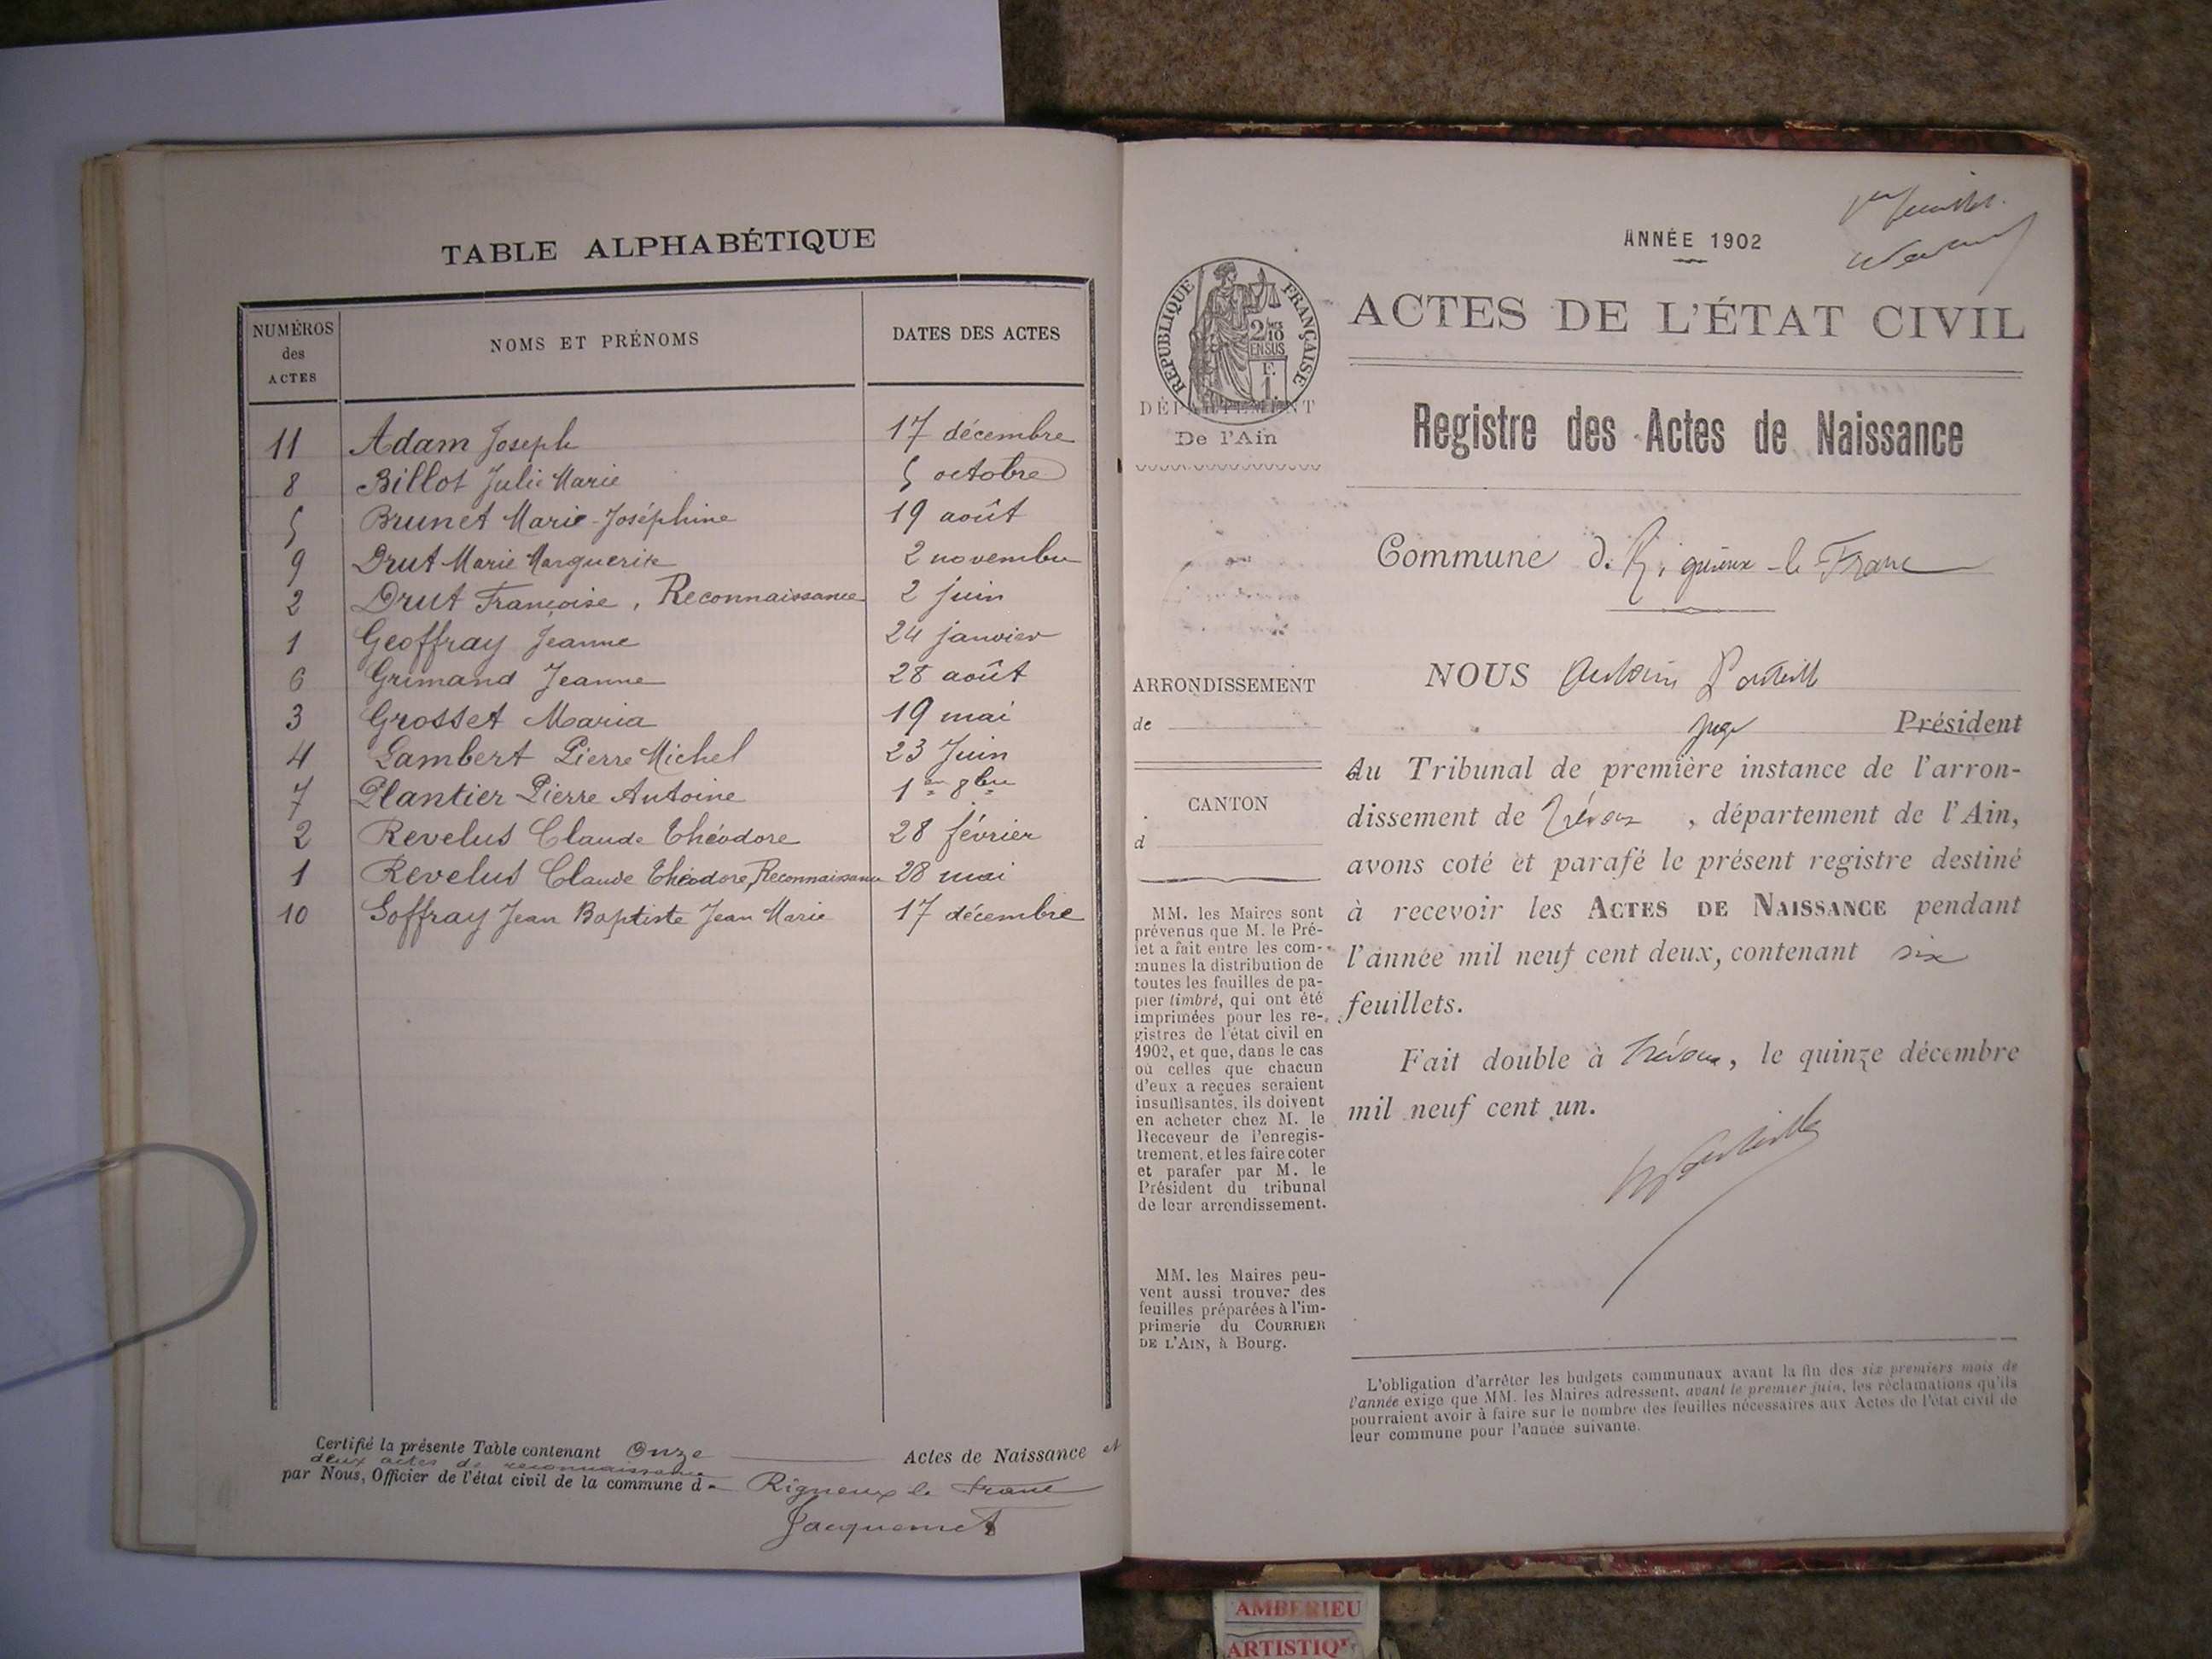 TABLE ALPHABÉTIQUE
NUMÉROS des ACTES
NOMS ET PRÉNOMS
DATES DES ACTES
11 Adam Joseph 17 décembre
8 Billot Julie Marie 5 octobre
5 Brunet Marie-Joséphine 19 août
9 Drut Marie Marguerite 2 novembre
2 Drut Françoise, Reconnaissance 2 juin
1 Geoffray Jeanne 24 janvier
6 Grimand Jeanne 28 août
3 Grosset Maria 19 mai
4 Lambert Pierre Michel 23 Juin
7 Plantier Pierre Antoine 1er 8bre
2 Revelus Claude Théodore 28 février
1 Revelus Claude Théodore, Reconnaissance 28 mai
10 Soffray Jean Baptiste Jean Marie 17 décembre
Certifié la présente Table contenant Onze Actes de Naissance et
deux actes de reconnaissance
par Nous, Officier de l'état civil de la commune de Rigneux le Franc
Jacquemet
1er feuillet.
ANNÉE 1902
RÉPUBLIQUE FRANÇAISE
2/10
EN SUS
F.
1.
ACTES DE L'ÉTAT CIVIL
DÉPARTEMENT
De l'Ain
Registre des Actes de Naissance
Commune d. Rigneux-le Franc
ARRONDISSEMENT
de
CANTON
d
MM. les Maires sont
prévenus que M. le Pré-
fet a fait entre les com-
munes la distribution de
toutes les feuilles de pa-
pier timbré, qui ont été
imprimées pour les re-
gistres de l'état civil en
1902, et que, dans le cas
où celles que chacun
d'eux a reçues seraient
insuffisantes, ils doivent
en acheter chez M. le
Receveur de l'enregis-
trement, et les faire coter
et parafer par M. le
Président du tribunal
de leur arrondissement.
MM. les Maires peu-
vent aussi trouver des
feuilles préparées à l'im-
primerie du COURRIER
DE L'AIN, à Bourg.
NOUS Antonin
juge Président
du Tribunal de première instance de l'arron-
dissement de Trévoux, département de l'Ain,
avons coté et parafé le présent registre destiné
à recevoir les ACTES DE NAISSANCE pendant
l'année mil neuf cent deux, contenant six
feuillets.
Fait double à Trévoux, le quinze décembre
mil neuf cent un.
L'obligation d'arrêter les budgets communaux avant la fin des six premiers mois de
l'année exige que MM. les Maires adressent, avant le premier juin, les réclamations qu'ils
pourraient avoir à faire sur le nombre des feuilles nécessaires aux Actes de l'état civil de
leur commune pour l'année suivante.
AMBERIEU
ARTISTIQ